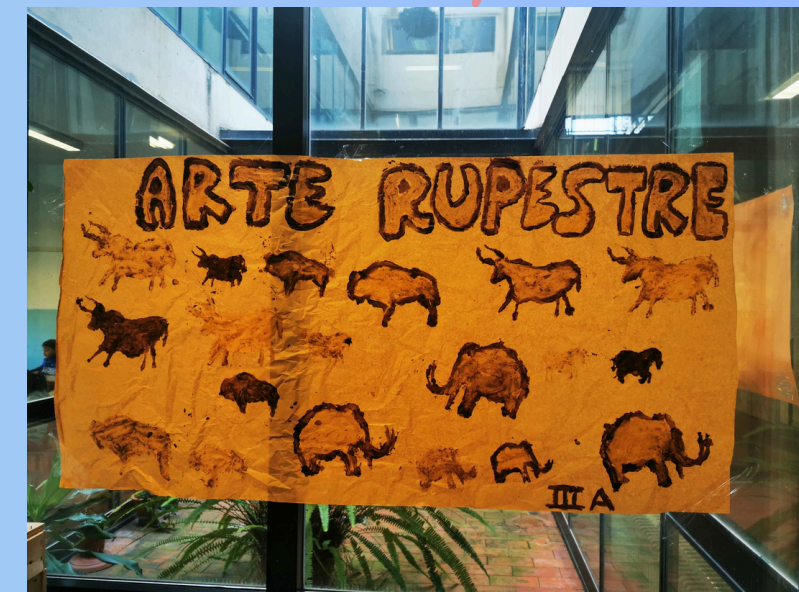 ARTE RUPESTRE
III A